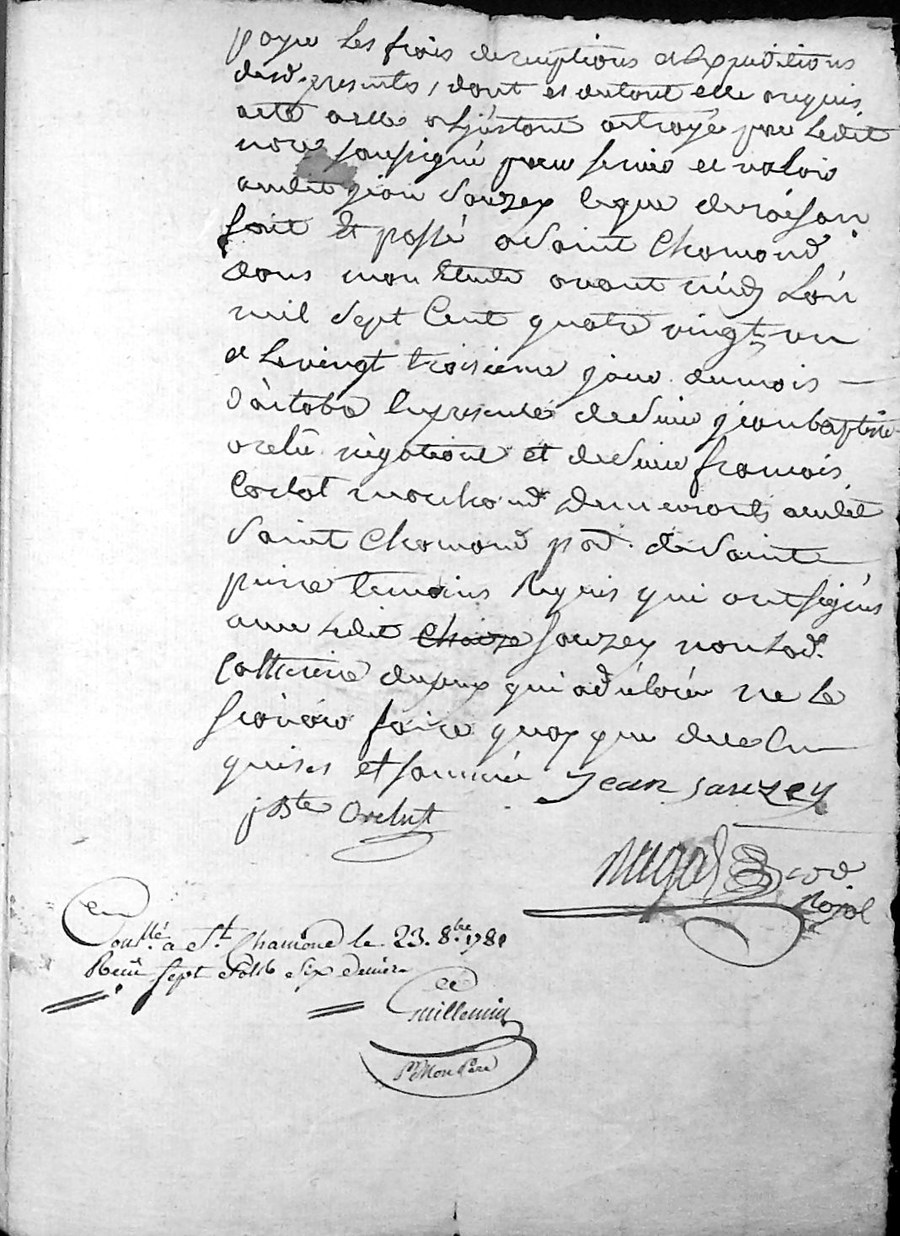 payer les frais de receptions et Expeditions
desd. presentes, dont et du tout elle a requis
acte a elle octroyé par ledit
no.re soussigné pour servir et valoir
audit jean Sauzey ce que de raison
fait Et passé a Saint Chamond
dans mon Etude avant midy L'an
mil Sept Cent quatre vingt un
et le vingt troisieme jour du mois
d'octobre En presence de Sieur jean baptiste
orelu négotiant et de Sieur francois
marchand Demeurants audit
Saint Chamond par. de Sainte
pierre temoins Requis qui ont signés
avec Ledit Sauzey non Lad.
Catherine dupuy qui a déclaré ne le
scavoir faire quoy que de ce En
quise et sommée jean sauzey
jBte Orelut
no.re
Royal
Con.llé a St. Chamond le 23. 8.bre 1781
Recu sept Sols Six deniers
Guillemin
Pr. Mon Pere